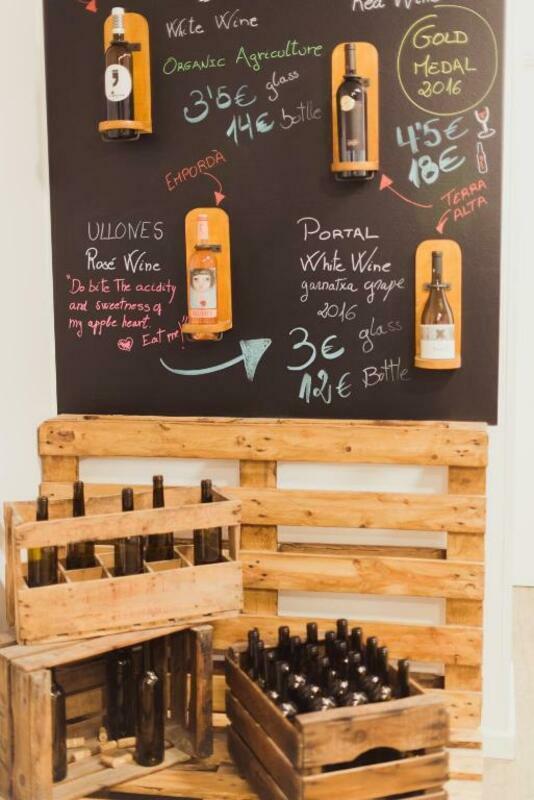 White Wine
Organic Agriculture
3'5€ glass
14€ bottle
Red Wine
Gold
Medal
2016
4'5€
18€
Empordà
Terra
Alta
Ullones
Rosé Wine
"Do bite The acidity
and sweetness of
my apple heart.
Eat me!"
Portal
White Wine
garnatxa grape
2016
3€ glass
12€ Bottle